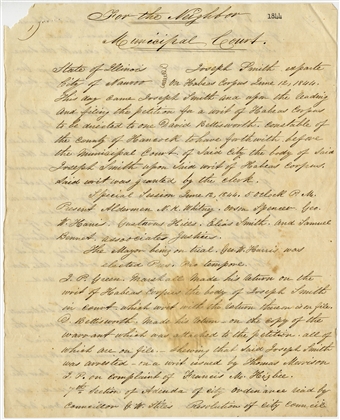 For the Neighbor
1844
Municipal Court.
State of Illinois Joseph Smith exparte
City of Nauvoo on Habeas Corpus June 10, 1844.
This day came Joseph Smith and upon the reading
and filing the petition for a writ of Habeas Corpus
to be directed to one David Bettisworth constable of
the county of Hancock to have forthwith before
the Municipal Court of said City the body of said
Joseph Smith upon said writ of Habeas Corpus.
said writ was granted by the clerk.
Special Session June 12, 1844. 5 oclock P.M.
Present Aldermen N. K. Whitney. Orson Spencer Geo.
W. Harris. Gustavus Hills, Elias Smith. and Samuel
Bennet, associates Justices.
The Mayor being on trial. Geo. W. Harris was
elected Pres. Pro tempore.
J. P. Green Marshall made his return on the
writ of Habeas Corpus the body of Joseph Smith
in court, which writ with the return there on is on file.
D. Bettisworth made his return on the copy of the
warrant which was attached to the petition all of
which are on file. shewing that said Joseph Smith
was arrested on a writ issued by Thomas Morrison
J. P. on complaint of Francis M. Higbee.
7th Section of Addenda of city ordinance read by
councillor G. W. Stiles Resolution of city council